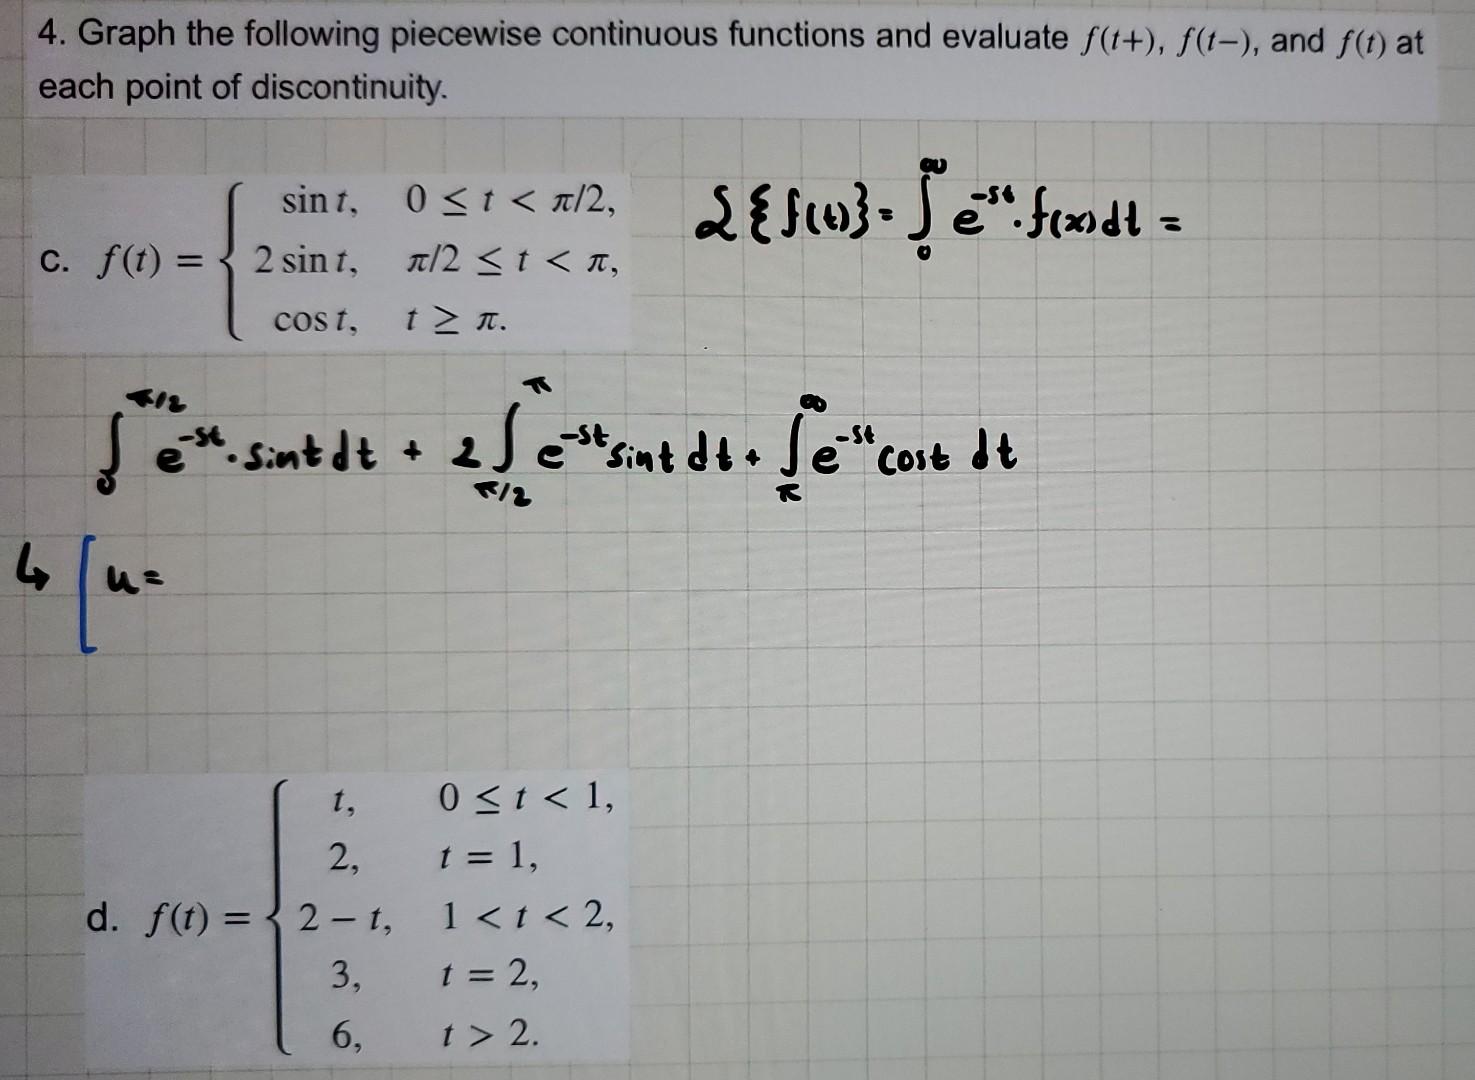 4. Graph the following piecewise continuous functions and evaluate f(t+), f(t−), and f(t) at
each point of discontinuity.
c. f(t) = { sin t, 0 ≤ t < π/2,
2 sin t, π/2 ≤ t < π,
cos t, t ≥ π.
ℒ{f(t)} = ∫₀^∞ e^{-st} · f(x) dt =
∫₀^{π/2} e^{-st} · sint dt + 2 ∫_{π/2}^{π} e^{-st} sint dt + ∫_{π}^{∞} e^{-st} cost dt
↳ [ u =
d. f(t) = { t, 0 ≤ t < 1,
2, t = 1,
2 − t, 1 < t < 2,
3, t = 2,
6, t > 2.